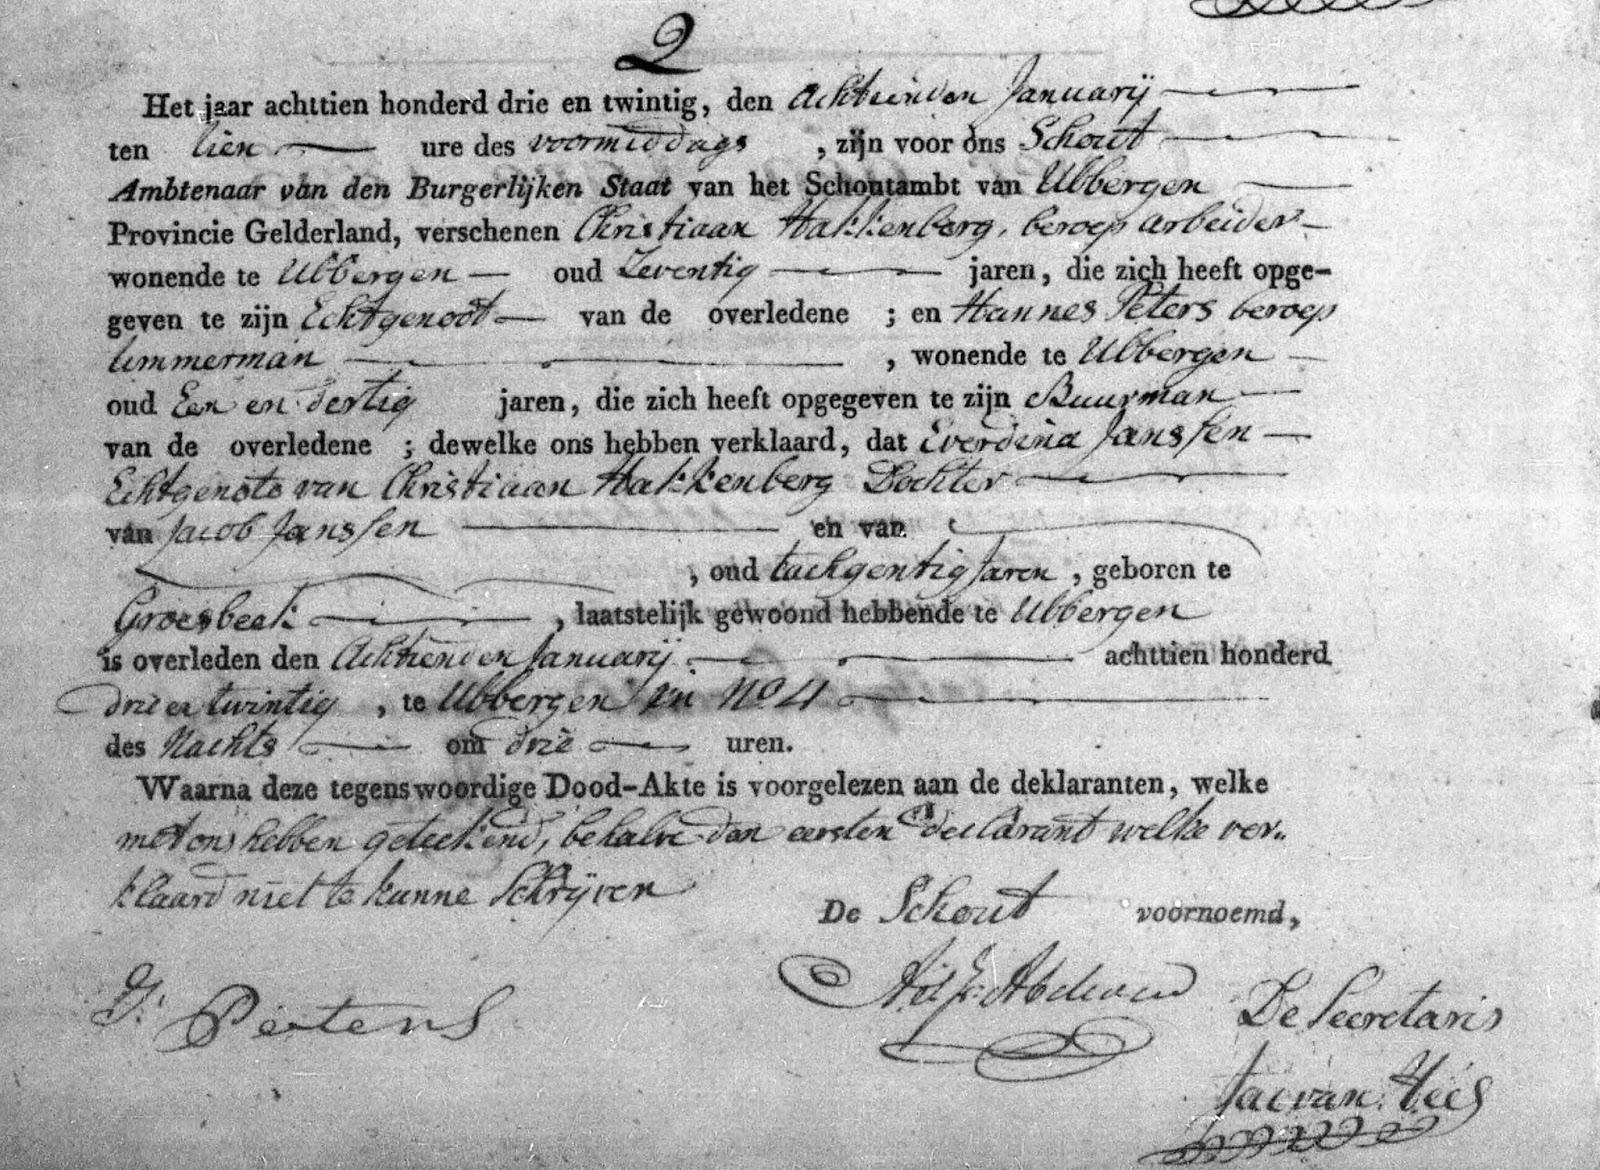 2
Het jaar achttien honderd drie en twintig, den Achttienden Januarij
ten tien ure des voormiddags, zijn voor ons Schout
Ambtenaar van den Burgerlijken Staat van het Schoutambt van Ubbergen
Provincie Gelderland, verschenen Christiaan Hakkenberg, beroep arbeider
wonende te Ubbergen oud Zeventig jaren, die zich heeft opge-
geven te zijn Echtgenoot van de overledene ; en Hannes Peters beroep
timmerman , wonende te Ubbergen
oud Een en dertig jaren, die zich heeft opgegeven te zijn Buurman
van de overledene ; dewelke ons hebben verklaard, dat Everdina Janssen
Echtgenote van Christiaan Hakkenberg Dochter
van Jacob Janssen en van
, oud tachgentig Jaren , geboren te
Groesbeek , laatstelijk gewoond hebbende te Ubbergen
is overleden den Achtienden Januarij achttien honderd
drie en twintig , te Ubbergen in No 4
des Nachts om drie uren.
Waarna deze tegenswoordige Dood-Akte is voorgelezen aan de deklaranten, welke
met ons hebben geteekend, behalve den eersten declarant welke ver-
klaard niet te kunne Schrijven
De Schout voornoemd,
Peters
De Secretaris
van Hees